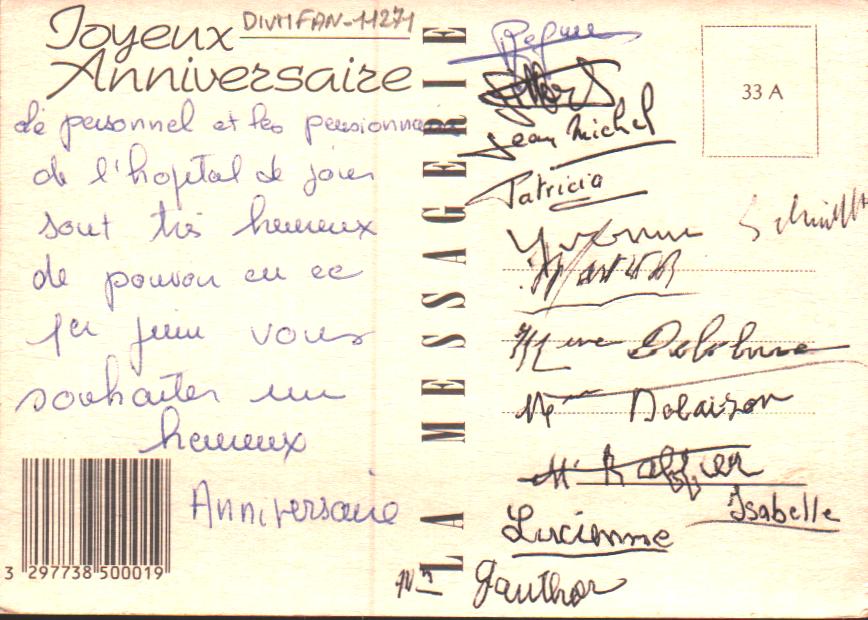 Joyeux
Anniversaire
DIVMFAN-11271
de personnel et les pensionnaires
de l'hopital de jour
sont très heureux
de pouvoir en ce
1er juin vous
souhaiter un
heureux
Anniversaire
3 297738 500019
LA MESSAGERIE
33 A
Jean Michel
Patricia
Yvonne
Mme
Mme Dolaizon
Mr Raffier
Isabelle
Lucienne
Gauthor